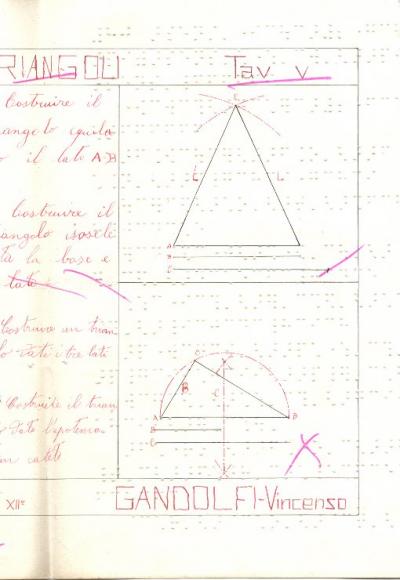 RIANGOLI
Tav V
Costruire il
angolo equila
o il lato AB
Costruire il
angolo isoscele
ta la base e
lato
Costruire un trian
lo dati i tre lati
Costruire il trian
dato l'ipotenu
un cateto
C
L
L
A
B
C
C
B
C
A
B
B
C
XIIª
GANDOLFI-Vincenso